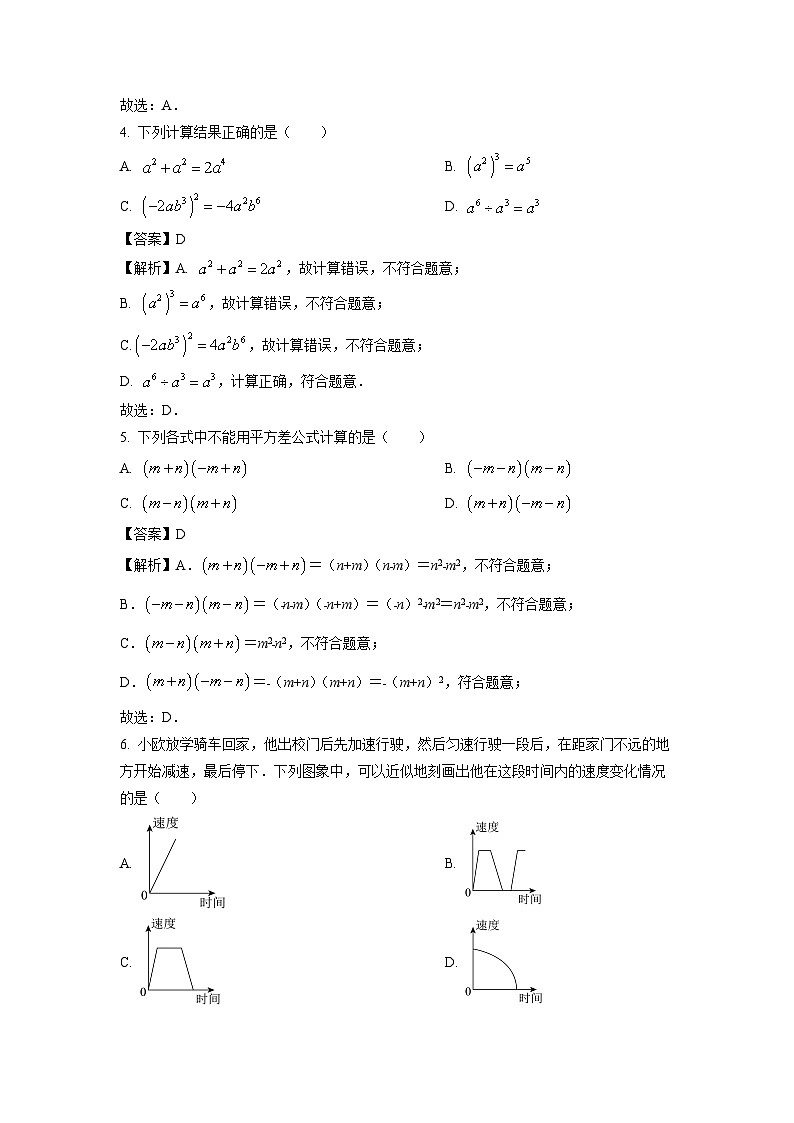 故选：A．
4. 下列计算结果正确的是（　　）
A. a²+a²=2a⁴　　B. (a²)³=a⁵
C. (−2ab³)²=−4a²b⁶　　D. a⁶÷a³=a³
【答案】D
【解析】A. a²+a²=2a²，故计算错误，不符合题意；
B. (a²)³=a⁶，故计算错误，不符合题意；
C. (−2ab³)²=4a²b⁶，故计算错误，不符合题意；
D. a⁶÷a³=a³，计算正确，符合题意．
故选：D．
5. 下列各式中不能用平方差公式计算的是（　　）
A. (m+n)(−m+n)　　B. (−m−n)(m−n)
C. (m−n)(m+n)　　D. (m+n)(−m−n)
【答案】D
【解析】A．(m+n)(−m+n)＝（n+m）（n-m）＝n²-m²，不符合题意；
B．(−m−n)(m−n)＝（-n-m）（-n+m）＝（-n）²-m²＝n²-m²，不符合题意；
C．(m−n)(m+n)＝m²-n²，不符合题意；
D．(m+n)(−m−n)＝-（m+n）（m+n）＝-（m+n）²，符合题意；
故选：D．
6. 小欧放学骑车回家，他出校门后先加速行驶，然后匀速行驶一段后，在距家门不远的地
方开始减速，最后停下．下列图象中，可以近似地刻画出他在这段时间内的速度变化情况
的是（　　）
A. 速度 0 时间
B. 速度 0 时间
C. 速度 0 时间
D. 速度 0 时间